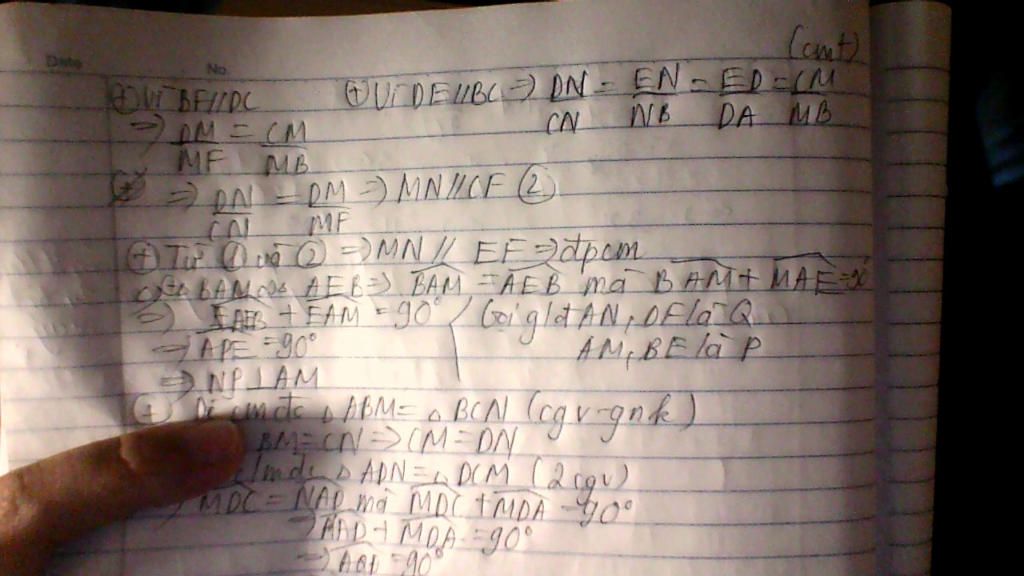 Date No.
(cmt)
(+) Vì BF//DC (+) Vì DE//BC => DN/CN = EN/NB = ED/DA = CM/MB
=> DM/MF = CM/MB
=> DN/CN = DM/MF => MN//CF (2)
(+) Từ (1) và (2) => MN // EF => đpcm
BAM AEB => BAM = AEB mà BAM + MAE =
=> + EAM = 90° Gọi gđ AN, DF là Q
=> APE = 90° AM, BE là P
=> NP ⊥ AM
(+) cmđc △ABM = △BCN (cgv-gnk)
BM = CN => CM = DN
cmđc △ADN = △DCM (2cgv)
=> MDC = NAD mà MDC + MDA = 90°
=> + MDA = 90°
=> = 90°